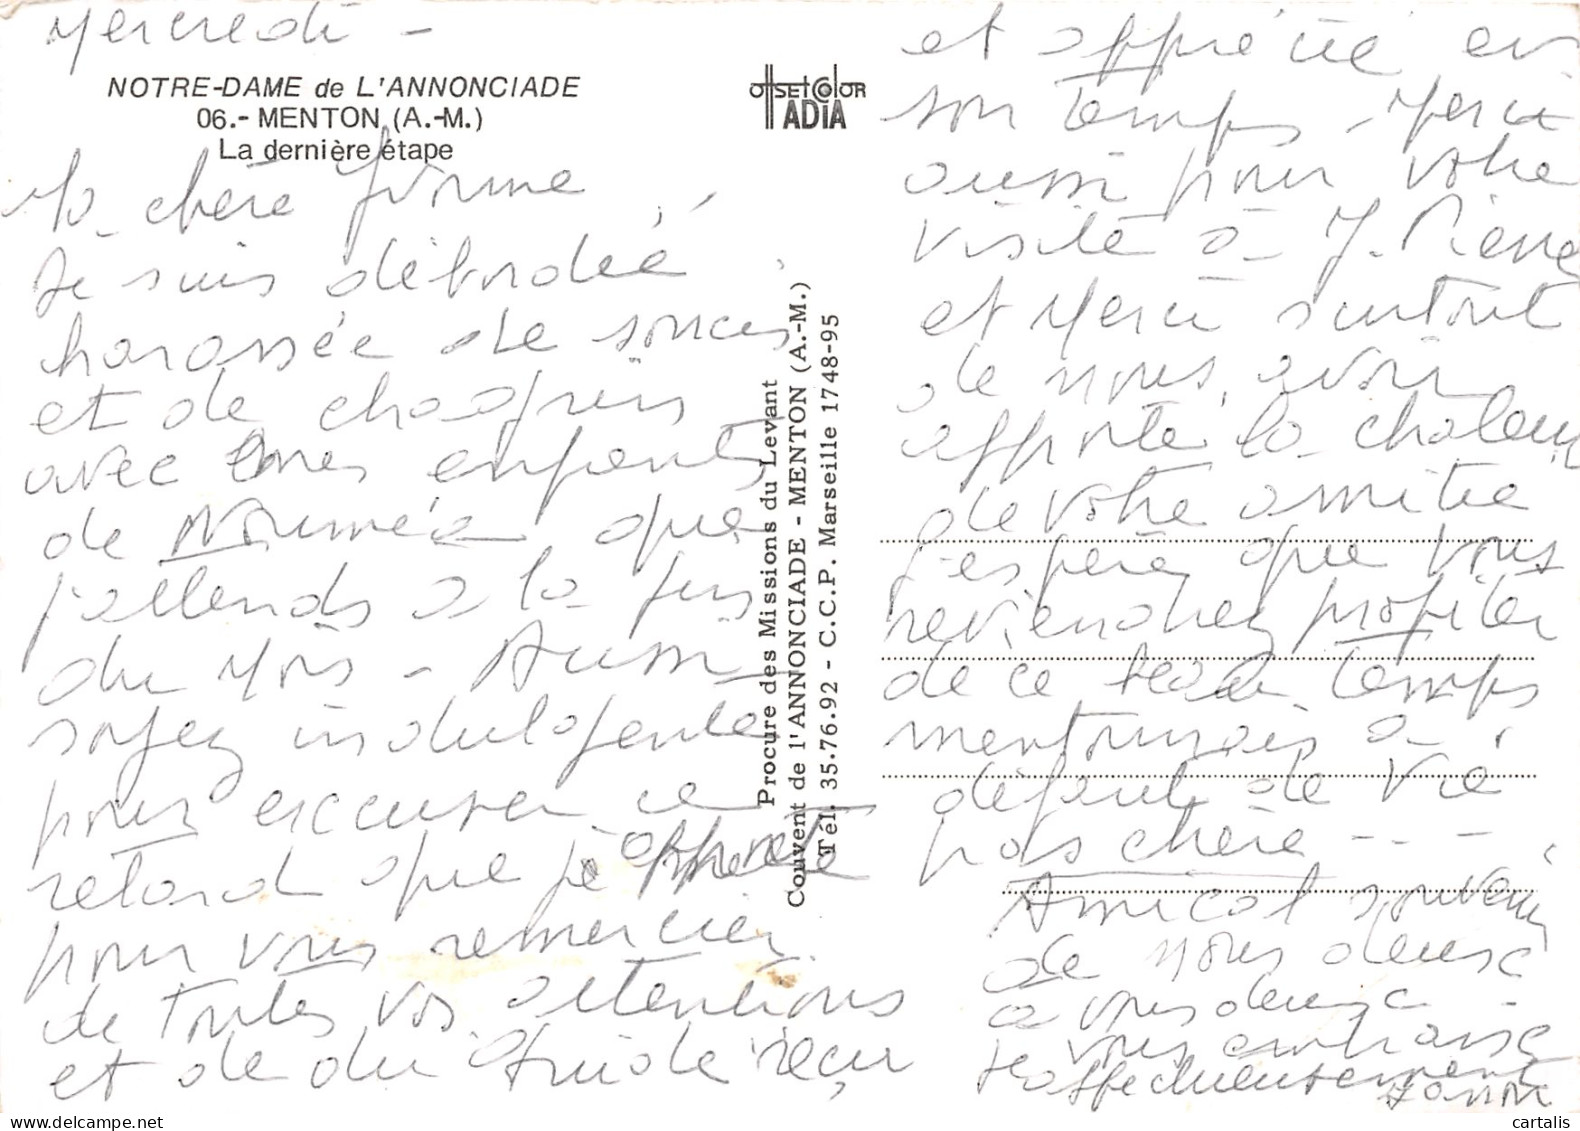 Mercredi -
NOTRE-DAME de L'ANNONCIADE
06.- MENTON (A.-M.)
La dernière étape
Ma chère Yvonne
Je suis débordée
harassée de soucis
et de chagrins
avec mes enfants
de Nouméa que
j'attends à la fin
du mois - Aussi
soyez indulgente
pour excuser ce
retard que je
pour vous remercier
de toutes vos attentions
et de du guide reçu
OFFSET COLOR
ADIA
Procure des Missions du Levant
Couvent de l'ANNONCIADE - MENTON (A.-M.)
Tél. 35.76.92 - C.C.P. Marseille 1748-95
et apprécié en
son temps - Merci
aussi pour votre
visite à J. Pierre
et Merci surtout
de nous avoir
apporté la chaleur
de votre amitié
J'espère que vous
reviendrez profiter
de ce beau temps
mentonnais à
défaut de vie
pas chère - - -
Amical souvenir
de nous deux
à vous deux
Je vous embrasse
affectueusement